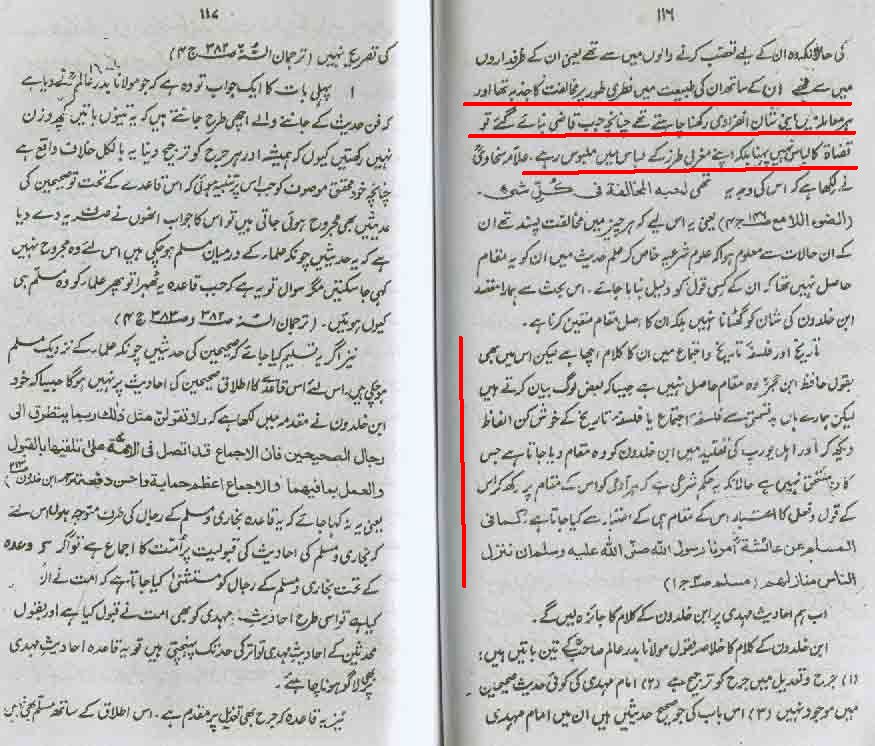 ۱۱۶
کی حالانکہ وہ ان کے بے تعصب کرنے والوں میں سے تھے یعنی ان کے طرفداروں
میں سے تھے ان کے ساتھ ان کی طبیعت میں نظری طور پر مخالفت کا جذبہ تھا اور
ہر معاملہ میں اپنی شان انفرادی رکھنا چاہتے تھے چنانچہ جب قاضی بنائے گئے تو
قضاۃ کا لباس نہیں پہنا بلکہ اپنے مغربی طرز کے لباس میں ملبوس رہے۔ علامہ سخاویؒ
نے لکھا ہے کہ اس کی وجہ یہ تھی لحبه المخالفة فی کل شیء۔
(الضوء اللامع ص۱۴۶ ج۴) یعنی یہ اس لیے کہ ہر چیز میں مخالفت پسند تھے ان
کے ان حالات سے معلوم ہوا کہ علوم شرعیہ خاص کر علم حدیث میں ان کو یہ مقام
حاصل نہیں تھا کہ ان کے کسی قول کو دلیل بنایا جائے۔ اس بحث سے ہمارا مقصد
ابن خلدون کی شان کو گھٹانا نہیں بلکہ ان کا اصل مقام متعین کرنا ہے۔
تاریخ اور فلسفۂ تاریخ و اجتماع میں ان کا کلام اچھا ہے لیکن اس میں بھی
بقول حافظ ابن حجرؒ وہ مقام حاصل نہیں ہے جیسا کہ بعض لوگ بیان کرتے ہیں
لیکن ہمارے ہاں بدقسمتی سے فلسفۂ اجتماع یا فلسفۂ تاریخ کے خوش کن الفاظ
دیکھ کر اور اہل یورپ کی تقلید میں ابن خلدون کو وہ مقام دیا جاتا ہے جس
کا وہ مستحق نہیں ہے حالانکہ یہ حکم شرعی ہے کہ ہر آدمی کو اس کے مقام پر رکھ کر اس
کے قول و فعل کا اعتبار اس کے مقام ہی کے اعتبار سے کیا جاتا ہے: کما فی
المسلم عن عائشة أمرنا رسول الله صلی الله علیه وسلم ان ننزل
الناس منازلهم (مسلم ص۴ ج۱)
اب ہم احادیث مہدی پر ابن خلدون کے کلام کا جائزہ لیں گے۔
ابن خلدون کے کلام کا خلاصہ بقول مولانا بدر عالم صاحبؒ کے تین باتیں ہیں:
(۱) جرح و تعدیل میں جرح کو ترجیح ہے (۲) امام مہدی کی کوئی حدیث صحیحین
میں موجود نہیں (۳) اس باب کی جو صحیح حدیثیں ہیں ان میں امام مہدی
۱۱۷
کی تصریح نہیں (ترجمان السنۃ ص۳۸۲ ج۴)
۱ پہلی بات کا ایک جواب تو وہ ہے کہ جو مولانا بدر عالمؒ نے دیا ہے
کہ فن حدیث کے جاننے والے اچھی طرح جانتے ہیں کہ یہ تینوں باتیں کچھ وزن
نہیں رکھتیں کیوں کہ ہمیشہ اور ہر جرح کو ترجیح دینا یہ بالکل خلاف واقع ہے
چنانچہ خود محقق موصوف کو جب اس پر تنبیہ ہوئی کہ اس قاعدے کے تحت تو صحیحین کی
حدیثیں بھی مجروح ہوئی جاتی ہیں تو اس کا جواب انھوں نے صرف یہ دے دیا
ہے کہ یہ حدیثیں چونکہ علماء کے درمیان مسلم ہو چکی ہیں اس لئے وہ مجروح نہیں
کہی جا سکتیں مگر سوال تو یہ ہے کہ جب قاعدہ یہ ٹھہرا تو پھر علماء کو وہ مسلم ہی
کیوں ہوئیں۔ (ترجمان السنۃ ص۳۸۲ و ص۳۸۳ ج۴)
نیز اگر یہ تسلیم کیا جائے کہ صحیحین کی حدیثیں چونکہ علماء کے نزدیک مسلم
ہو چکی ہیں۔ اس لئے اس قاعدے کا اطلاق صحیحین کی احادیث پر نہیں ہوگا جیسا کہ خود
ابن خلدون نے مقدمہ میں لکھا ہے کہ ولا تقولن مثل ذلك ربما یتطرق الی
رجال الصحیحین فان الاجماع قد اتصل فی الامة علی تلقیهما بالقبول
والعمل بما فیهما والاجماع اعظم حمایة واحسن دفعة (مقدمہ ابن خلدون ص۳۱۲)
یعنی یہ نہ کہا جائے کہ یہ قاعدہ بخاری و مسلم کے رجال کی طرف متوجہ ہوگا اس لئے
کہ بخاری و مسلم کی احادیث کی قبولیت پر امت کا اجماع ہے تو اگر قاعدہ
کے تحت بخاری و مسلم کے رجال کو مستثنیٰ کیا جاتا ہے کہ امت نے
کیا ہے تو اسی طرح احادیث مہدی کو بھی امت نے قبول کیا ہے اور بقول
محدثین کے احادیث مہدی تواتر کی حد تک پہنچتی ہیں تو یہ قاعدہ احادیث مہدی
پر لاگو ہونا چاہئے۔
نیز یہ قاعدہ کہ جرح بھی تعدیل پر مقدم ہے۔ اس اطلاق کے ساتھ مسلم بھی نہیں